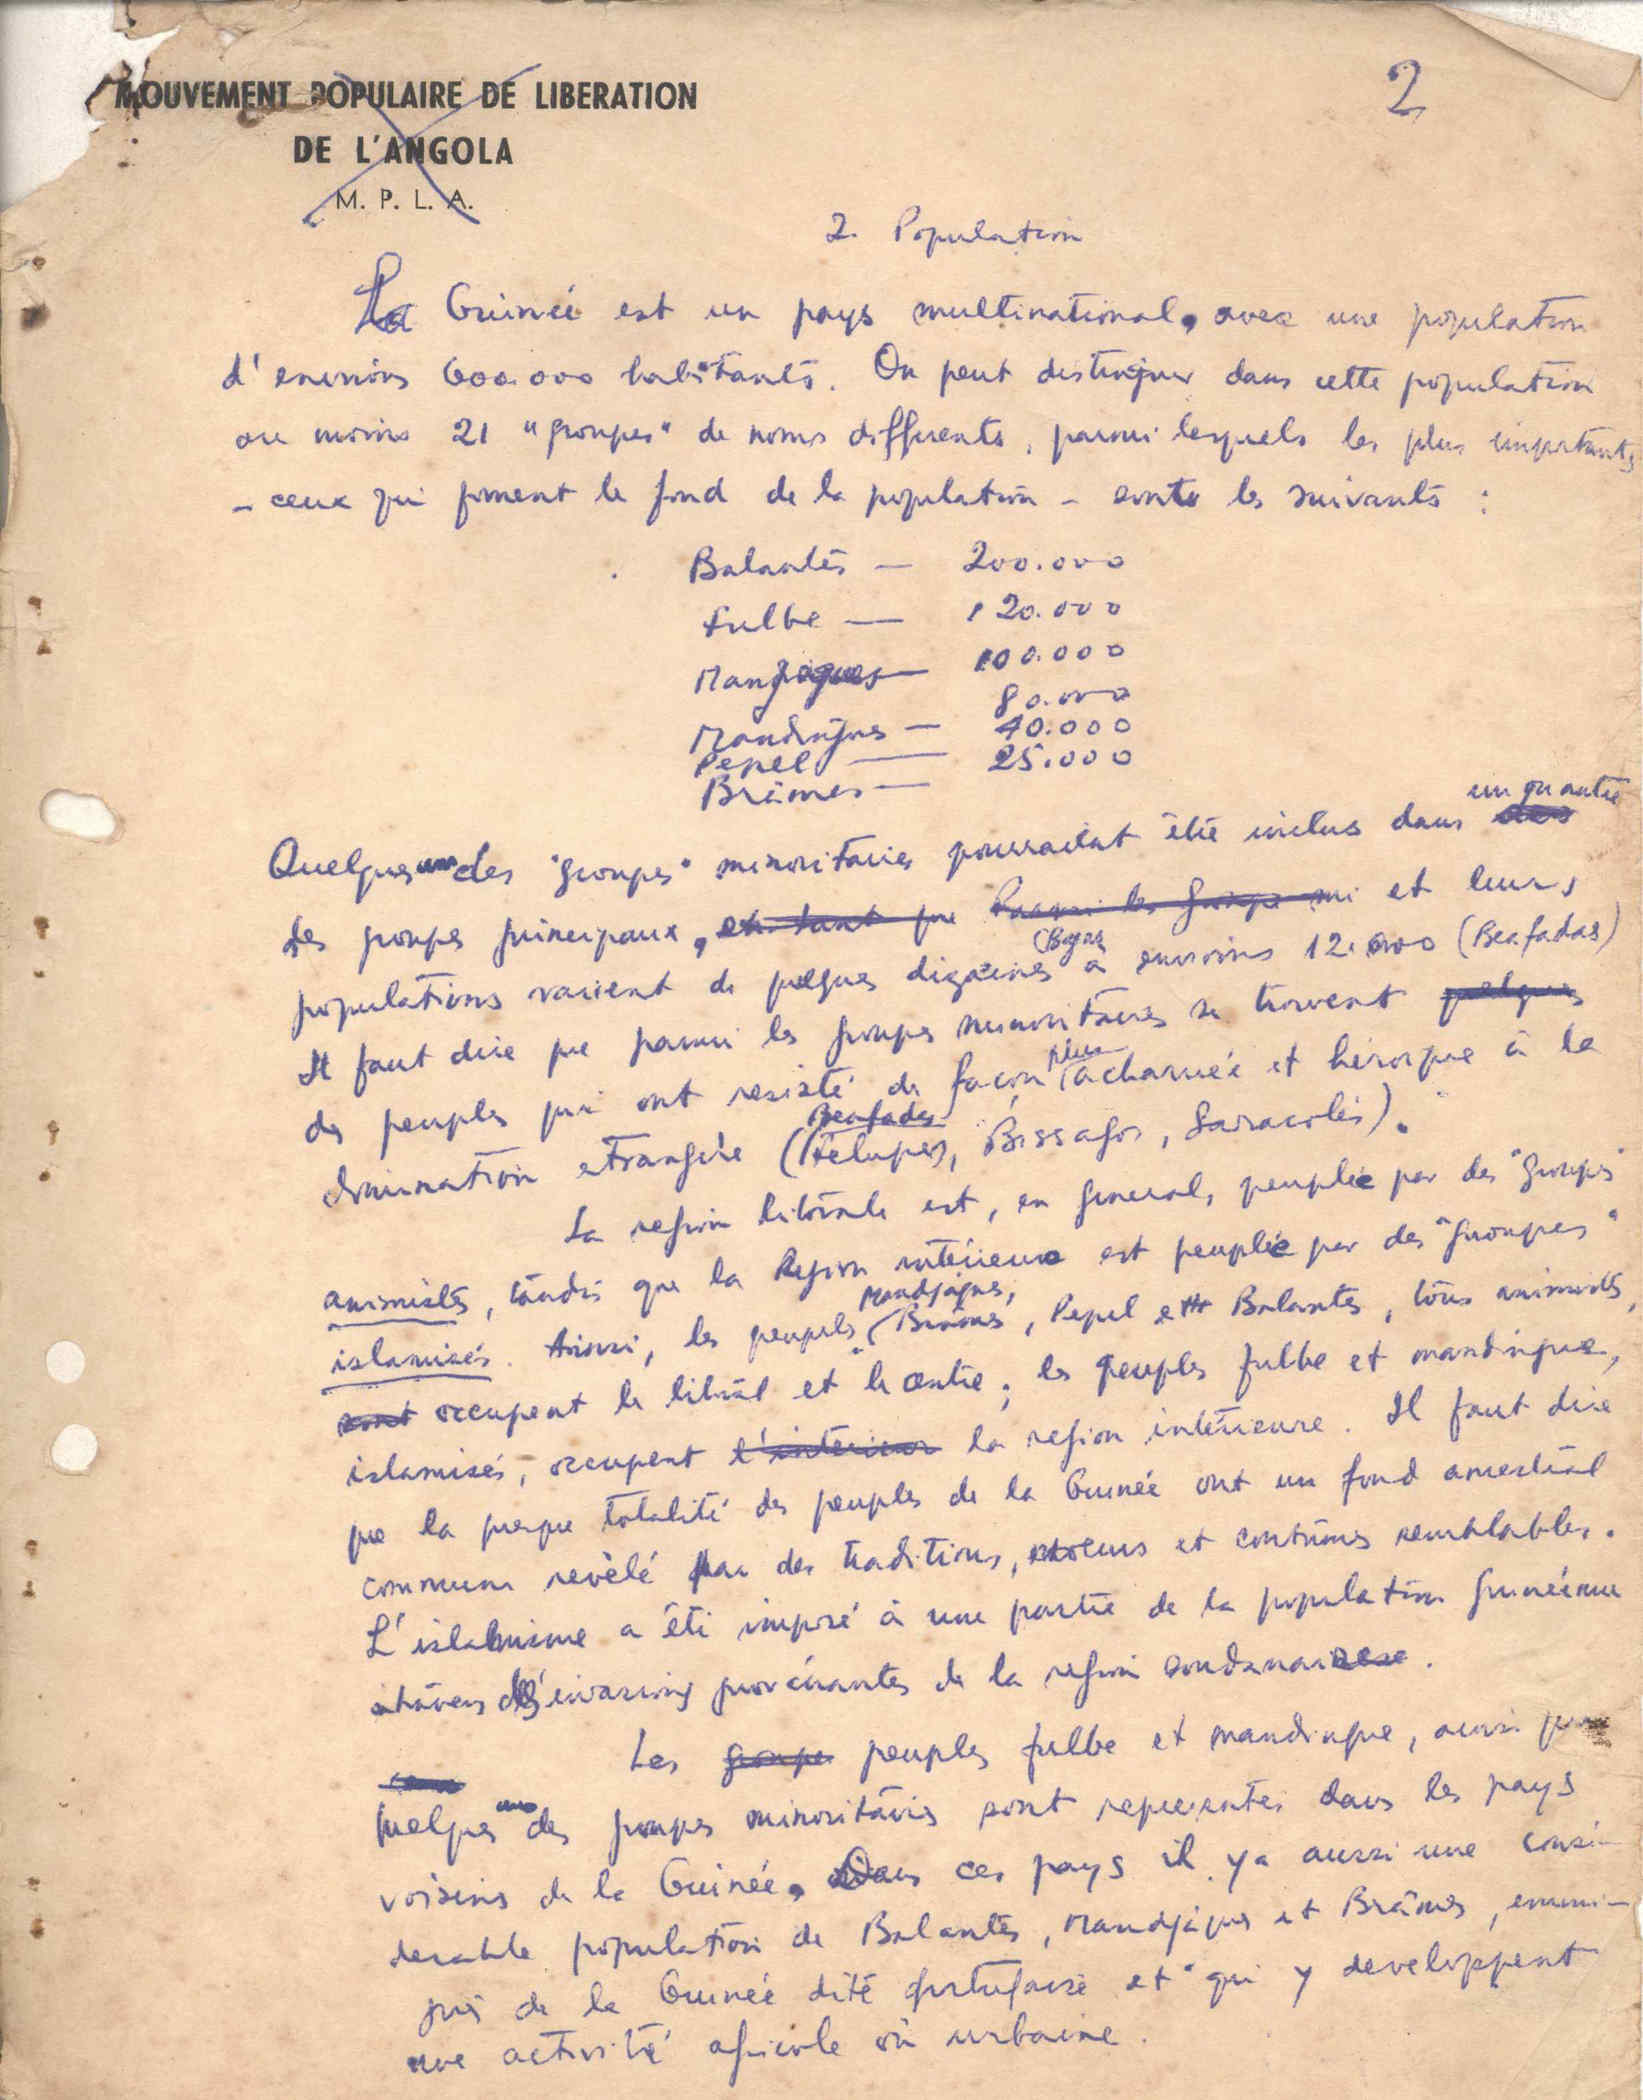 MOUVEMENT POPULAIRE DE LIBERATION
DE L'ANGOLA
M. P. L. A.
2
2. Population
La Guinée est un pays multinational, avec une population
d'environs 600.000 habitants. On peut distinguer dans cette population
au moins 21 "groupes" de noms differents, parmi lesquels les plus importants
- ceux qui forment le fond de la population - sont les suivants :
Balantes — 200.000
Fulbe — 120.000
Mandjaques — 100.000
Mandingues — 80.000
Pepel — 40.000
Brâmes — 25.000
un ou autre
Quelques uns des "groupes" minoritaires pourraient être inclus dans des
des groupes principaux, en tant que Parmi les groupes mi et leurs
populations varient de quelques dizaines (Bagas) à environs 12.000 (Beafadas)
Il faut dire que parmi les groupes minoritaires se trouvent quelques
des peuples qui ont resisté de façon plus acharnée et héroique à la
Beafadas
domination etrangère (Felupes, Bissagos, Saracolés).
La region litorale est, en general, peuplée par des "groupes"
animistes, tandis que la Region intérieure est peuplée par des "groupes"
Mandjaques,
islamisés. Ainsi, les peuples Brâmes, Pepel et Balantes, tous animistes,
sont occupent le litoral et le centre; les peuples fulbe et mandingue,
islamisés, occupent l'intérieur la region intérieure. Il faut dire
que la presque totalité des peuples de la Guinée ont un fond ancestral
commun revèlé par des traditions, moeurs et coutumes semblables.
L'islamisme a été imposé à une partie de la population guinéenne
à travers des invasions provenantes de la region soudanaise.
Les groupes peuples fulbe et mandingue, aussi que
quelques uns des groupes minoritaires sont representés dans les pays
voisins de la Guinée. Dans ces pays il y a aussi une consi-
derable population de Balantes, Mandjaques et Brâmes, emmi-
grés de la Guinée dite portugaise et qui y developpent
une activité agricole ou urbaine.